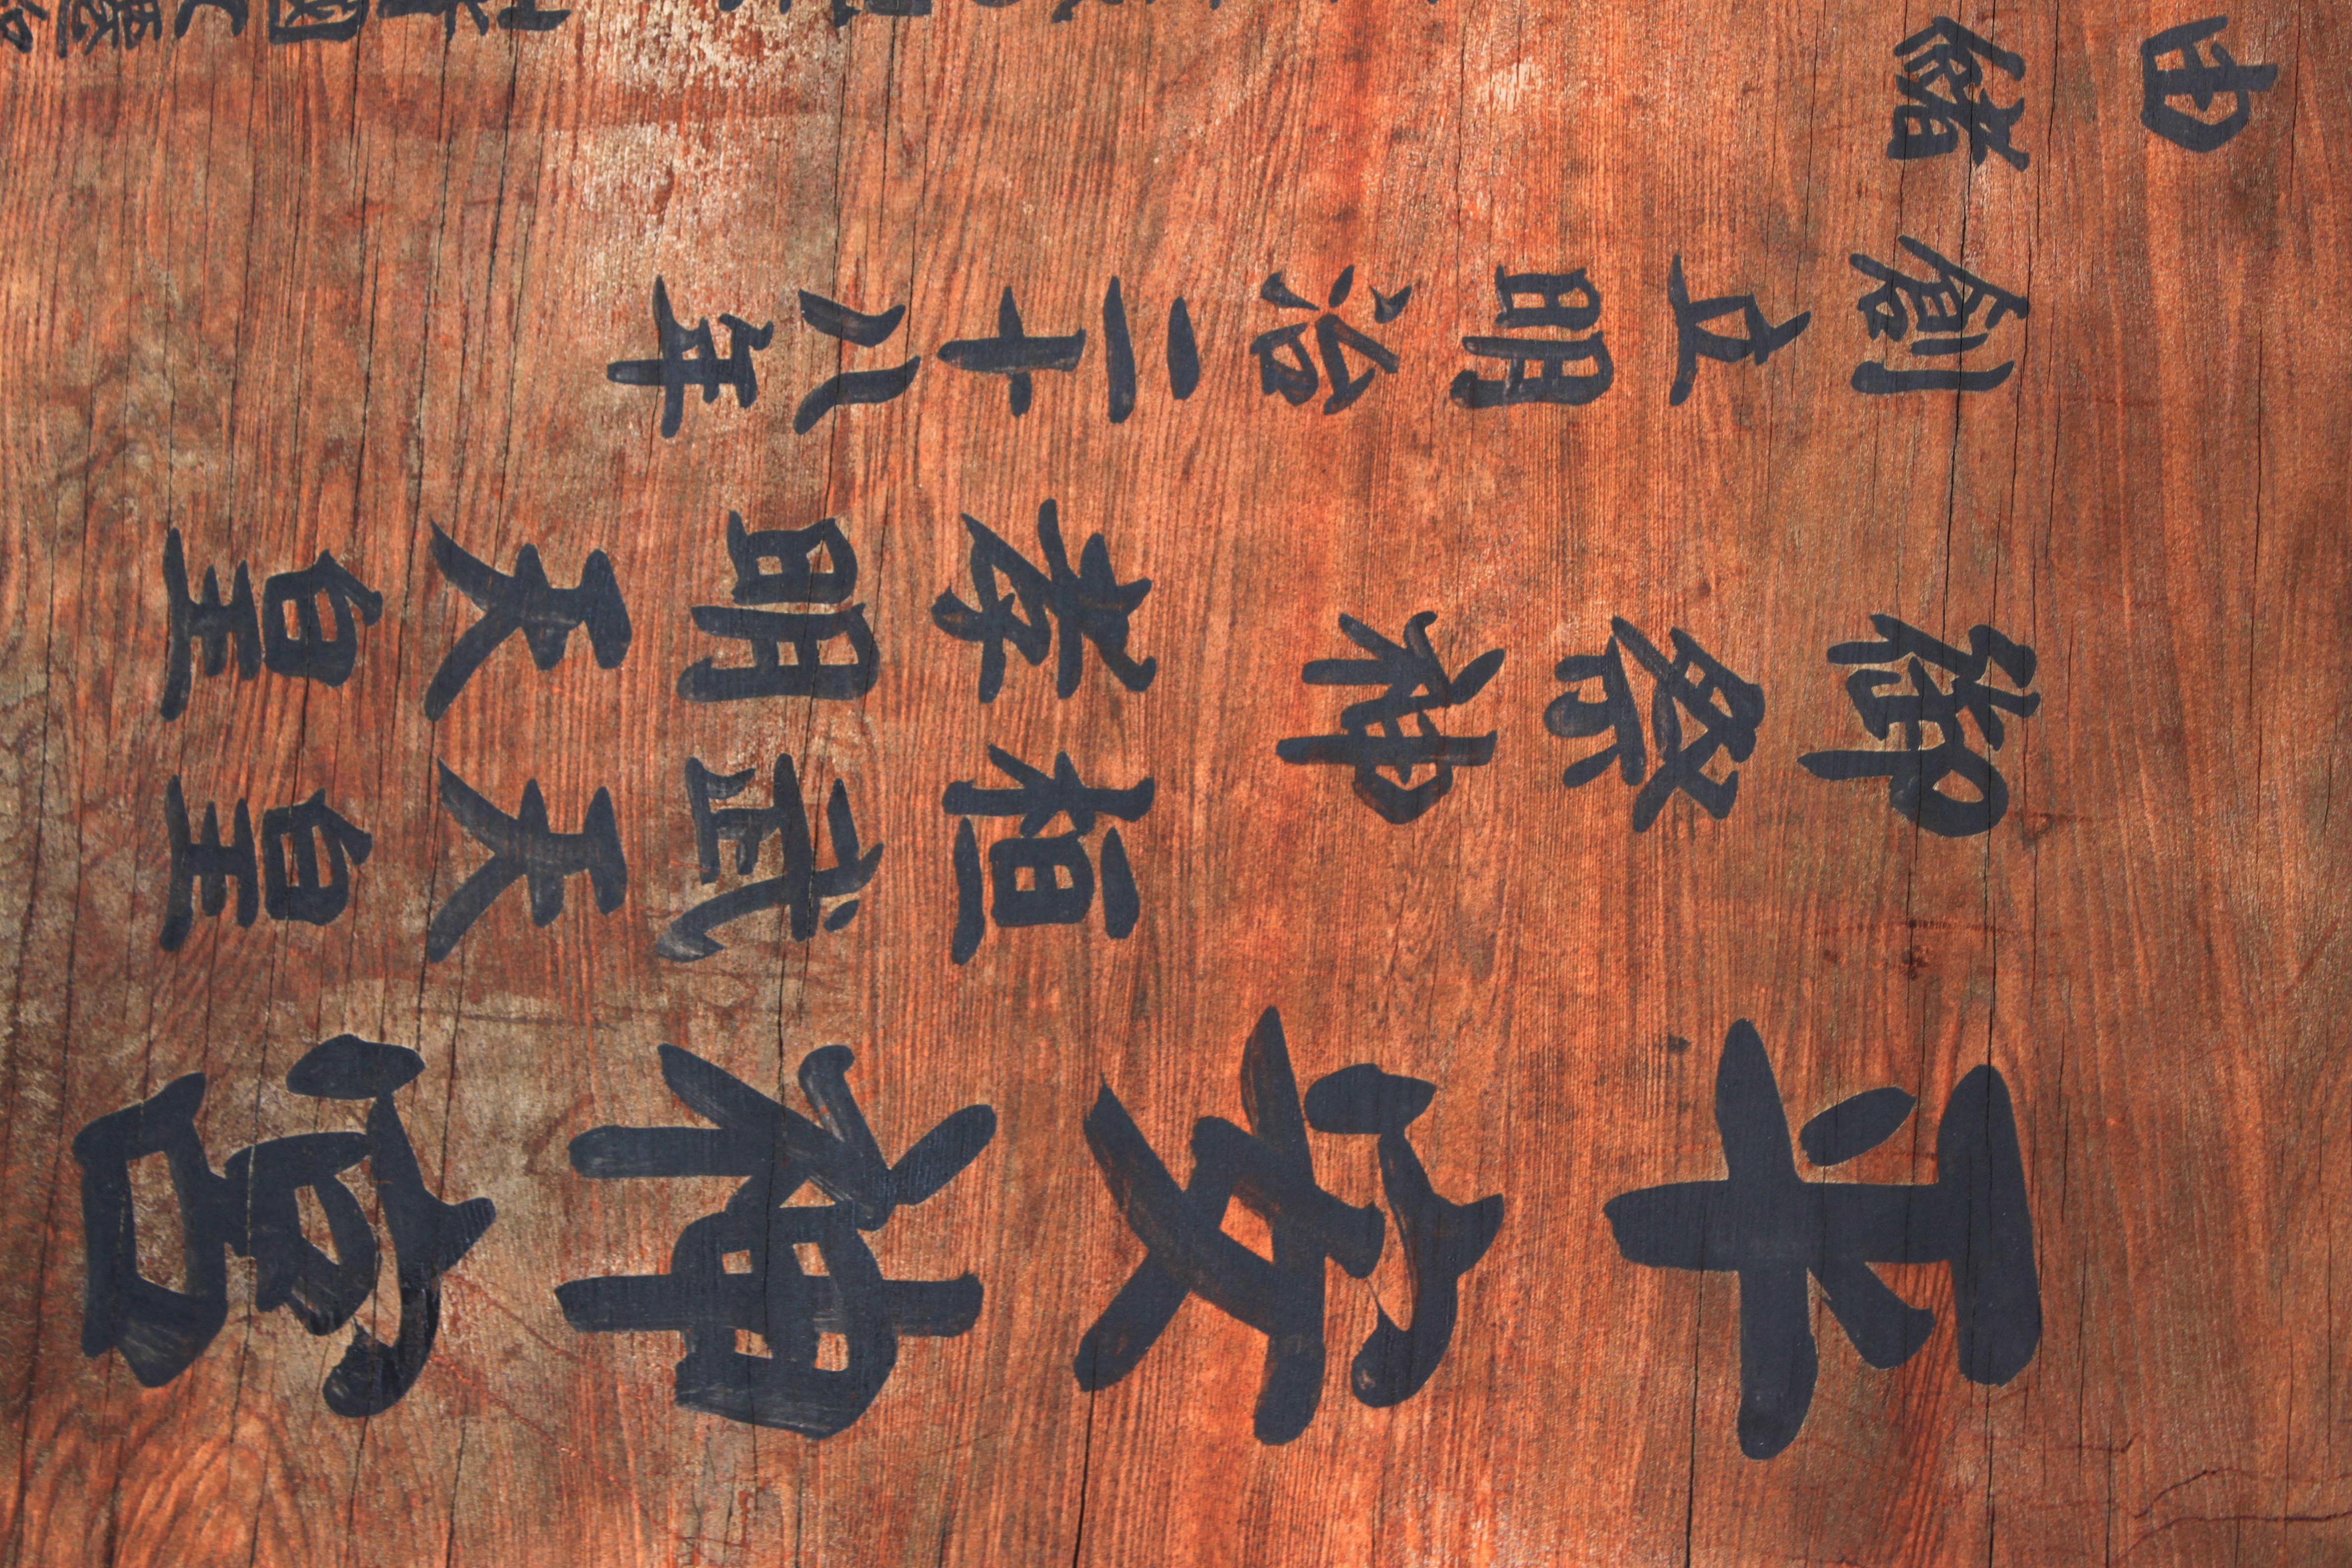 平安神宮
御祭神
桓武天皇
孝明天皇
創立明治二十八年
由緒